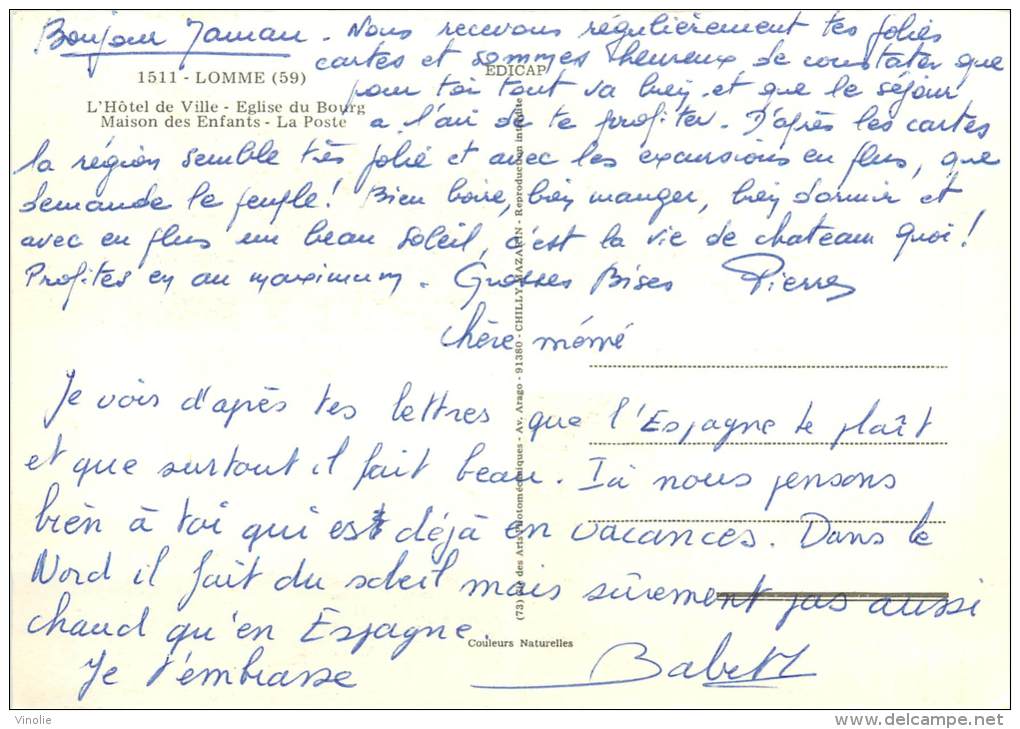 Bonjour Maman - Nous recevons régulièrement tes jolies
cartes et sommes heureux de constater que
pour toi tout va bien, et que le séjour
a l'air de te profiter. D'après les cartes
la région semble très jolie et avec les excursions en plus, que
demande le peuple! Bien boire, bien manger, bien dormir et
avec en plus un beau soleil, c'est la vie de chateau quoi!
Profites en au maximum. Grosses Bises Pierre
1511 - LOMME (59)
EDICAP
L'Hôtel de Ville - Eglise du Bourg
Maison des Enfants - La Poste
chère mémé
Je vois d'après tes lettres que l'Espagne te plaît
et que surtout il fait beau. Ici nous pensons
bien à toi qui est déjà en vacances. Dans le
Nord il fait du soleil mais sûrement pas aussi
chaud qu'en Espagne.
Je t'embrasse Babett
Couleurs Naturelles
Arts Photomécaniques - Av. Arago - 91380 - CHILLY MAZARIN - Reproduction interdite
Vinolie
http://www.delcampe.net